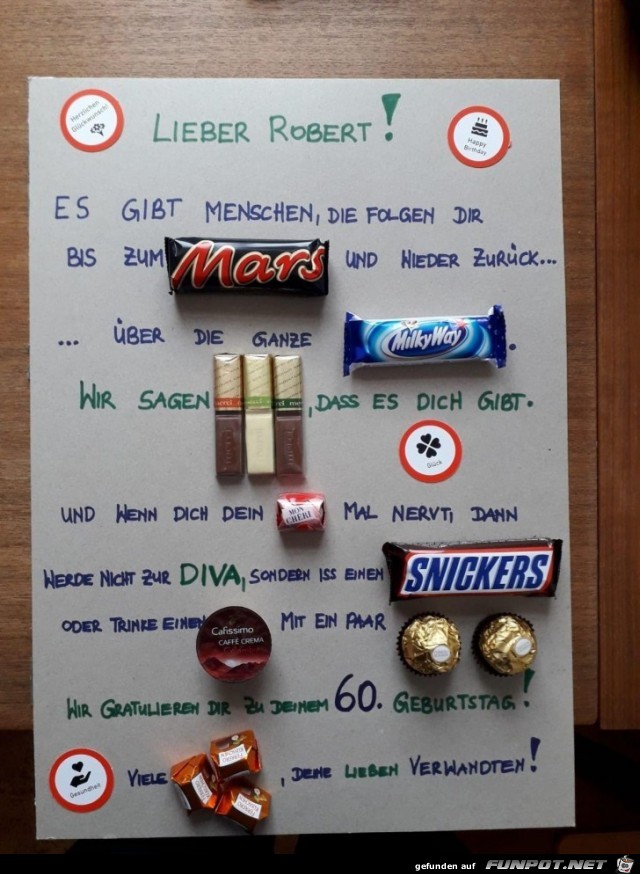 Herzlichen Glückwunsch!
LIEBER ROBERT!
Happy Birthday
ES GIBT MENSCHEN, DIE FOLGEN DIR
BIS ZUM Mars UND WIEDER ZURÜCK...
... ÜBER DIE GANZE MilkyWay.
WIR SAGEN merci, DASS ES DICH GIBT.
Glück
UND WENN DICH DEIN MON CHÉRI MAL NERVT, DANN
WERDE NICHT ZUR DIVA, SONDERN ISS EINEN SNICKERS
ODER TRINKE EINEN Cafissimo CAFFÈ CREMA MIT EIN PAAR
WIR GRATULIEREN DIR ZU DEINEM 60. GEBURTSTAG!
Gesundheit
VIELE , DEINE LIEBEN VERWANDTEN!
gefunden auf FUNPOT.NET